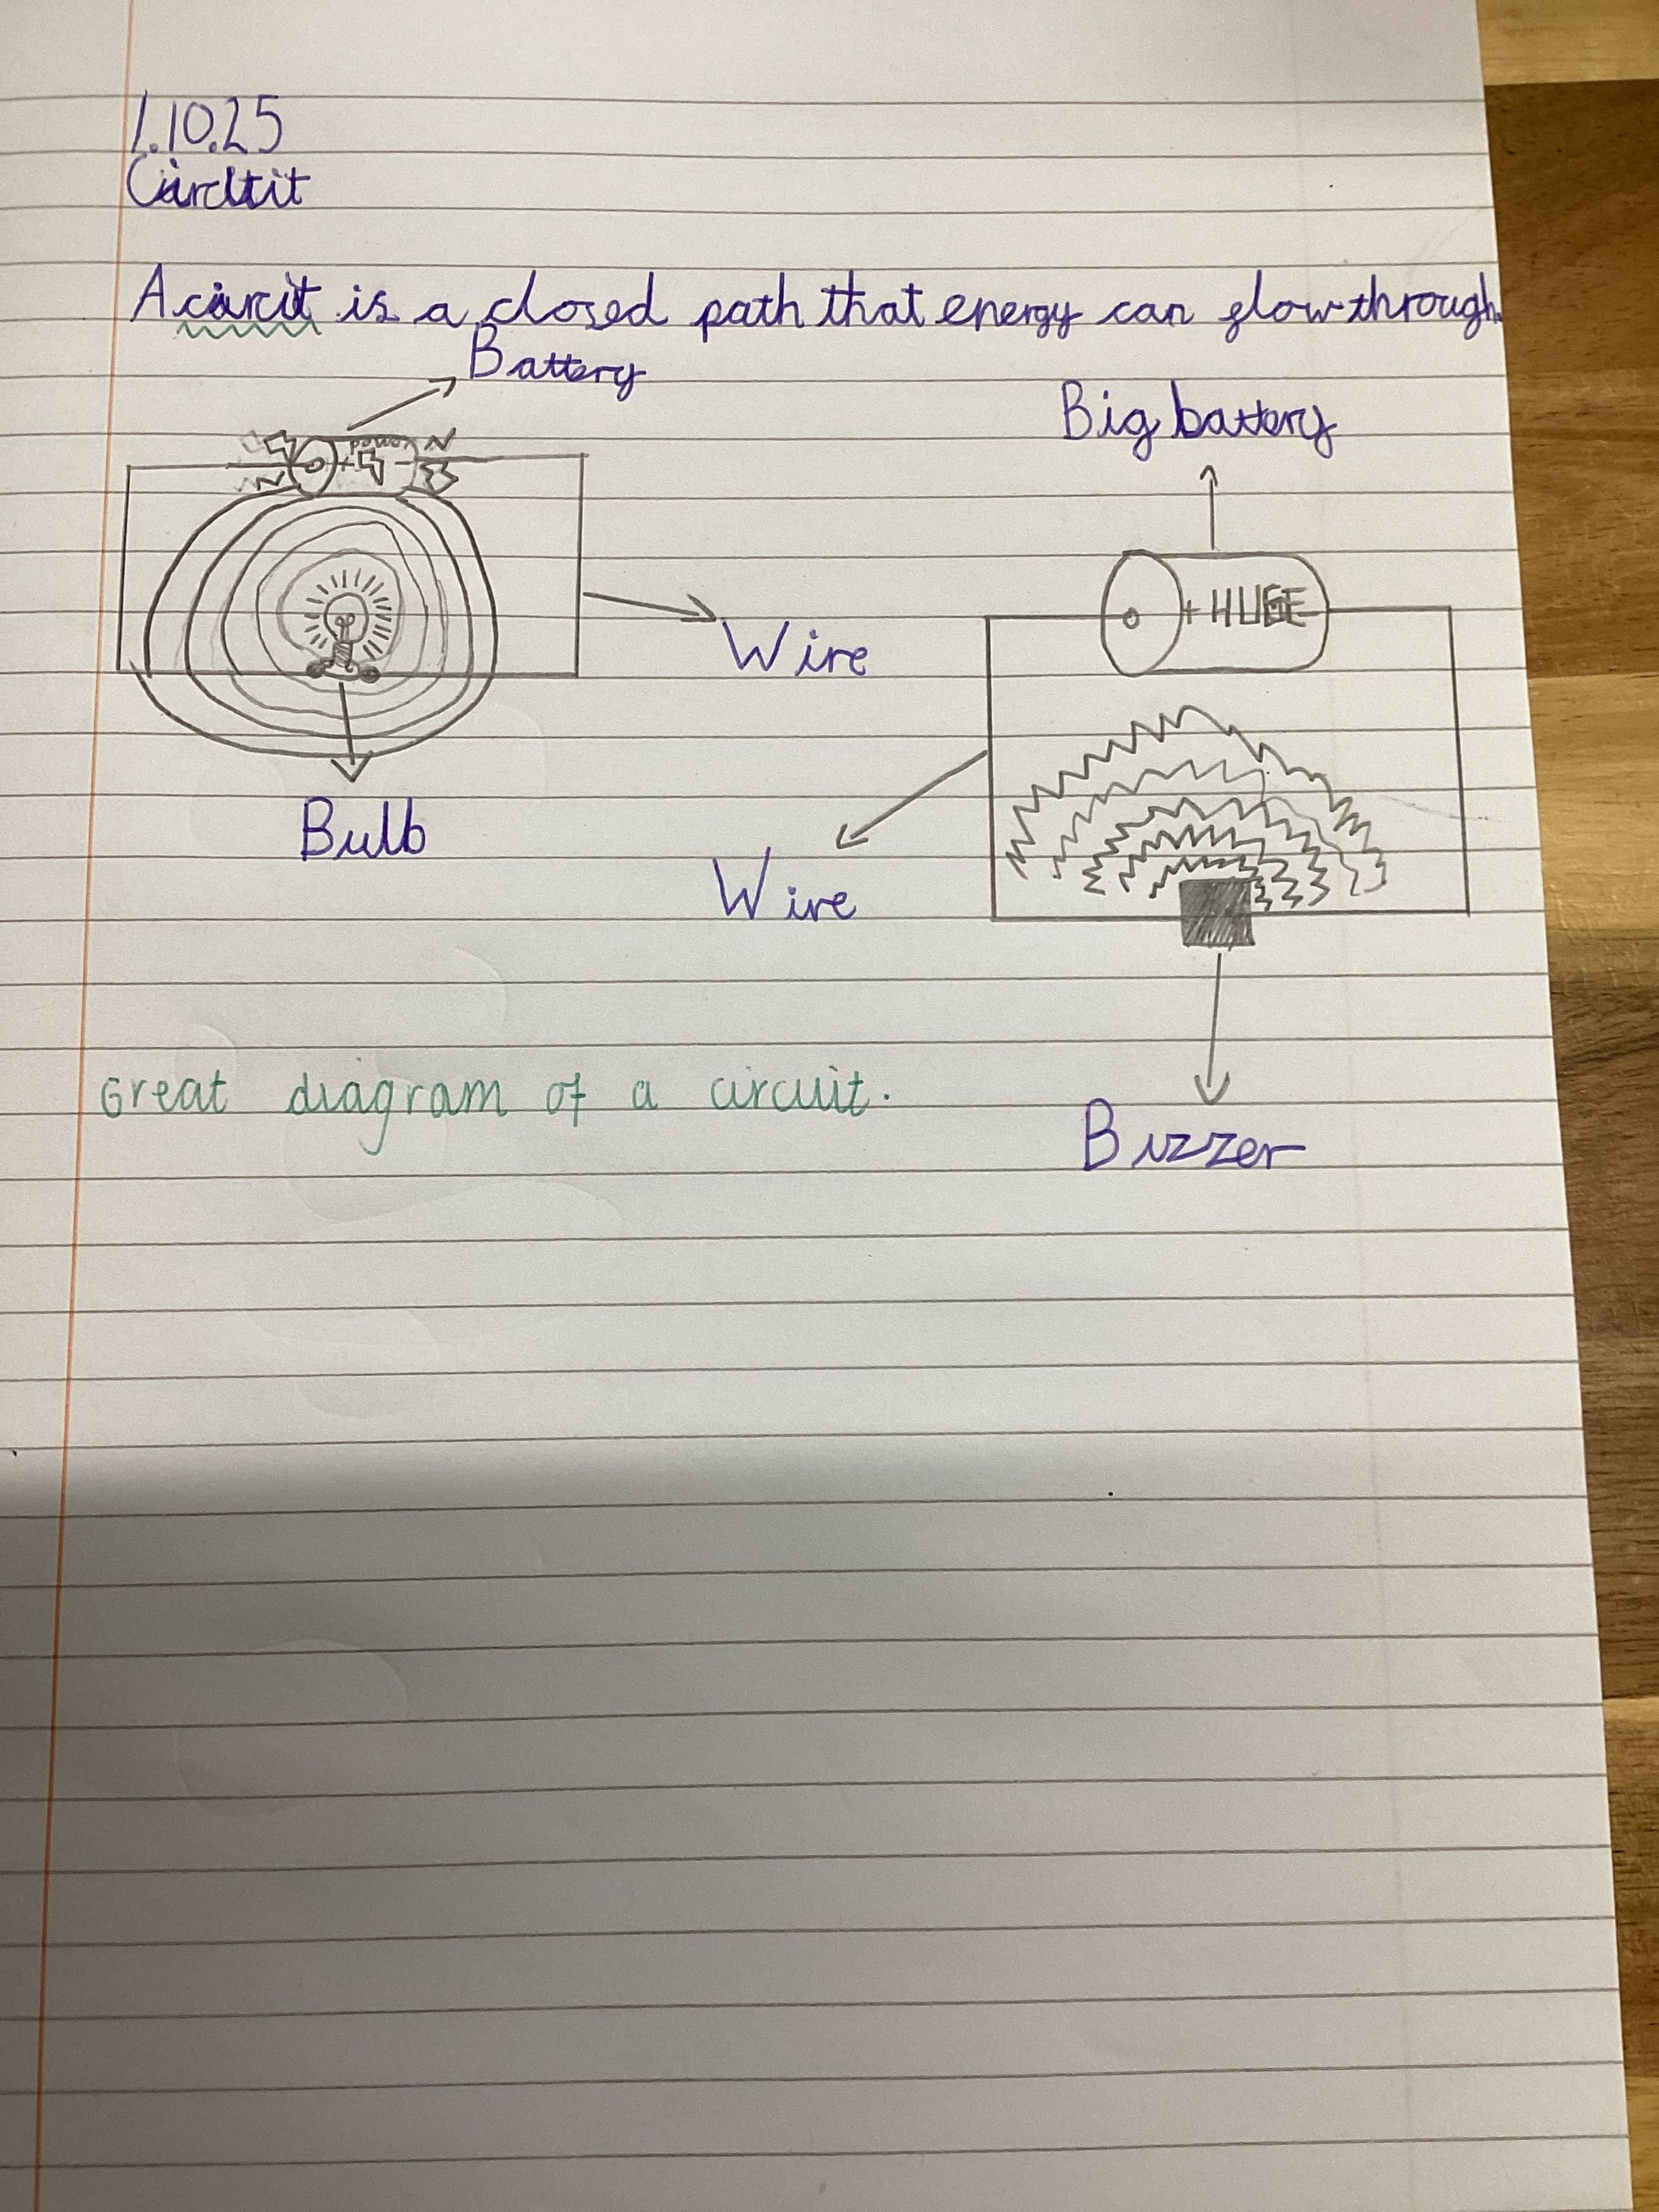 1.10.25
Circtit
A circit is a closed path that energy can flow through.
Battery
Big battery
power
+ -
+ HUGE
Wire
Bulb
Wire
Great diagram of a circuit.
Buzzer